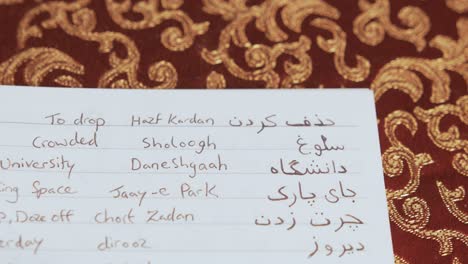 To drop Hazf Kardan حذف کردن
Crowded Sholoogh شلوغ
University Daneshgaah دانشگاه
Space Jaay-e Park جای پارک
Doze off Chort Zadan چرت زدن
dirooz دیروز